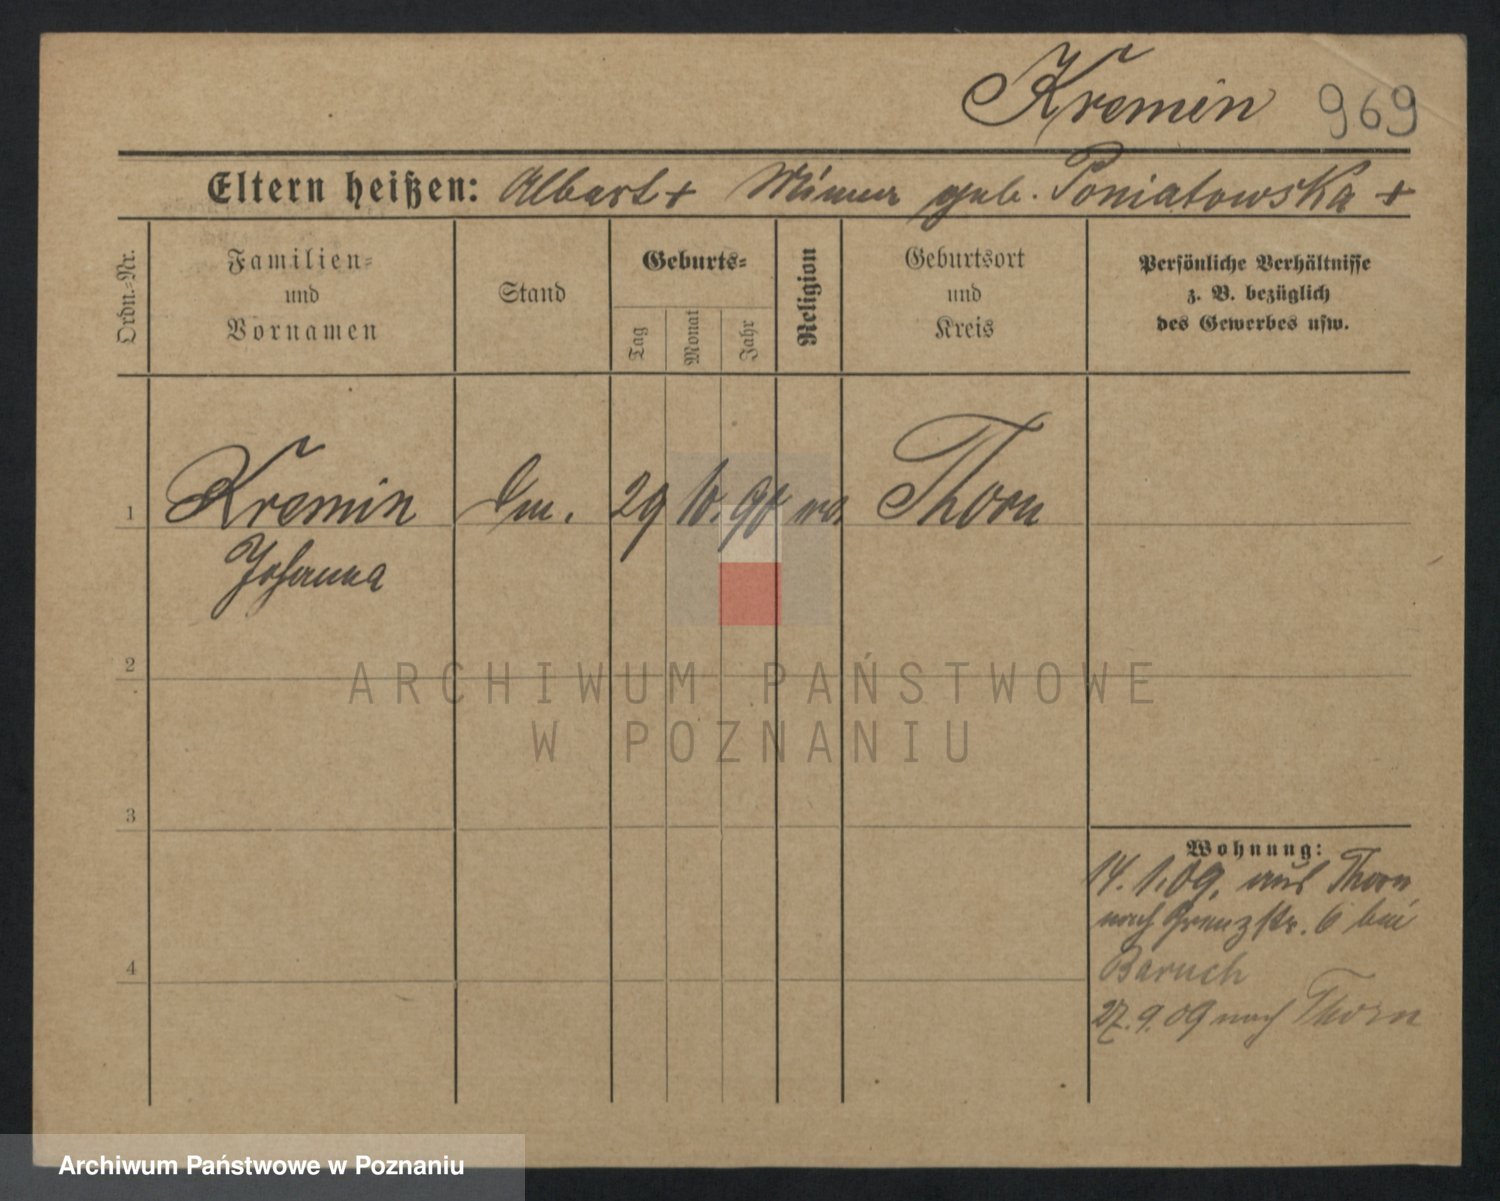 Kremin 969
Eltern heißen: Albert + Minna geb. Poniatowska +
Ordn.-Nr.
Familien-
und
Vornamen
Stand
Geburts-
Tag
Monat
Jahr
Religion
Geburtsort
und
Kreis
Persönliche Verhältnisse
z. B. bezüglich
des Gewerbes usw.
1 Kremin 29 10. 90 Thorn
Johanna
2
ARCHIWUM PAŃSTWOWE
W POZNANIU
3
Wohnung:
14. 1. 09. aus Thorn
nach Grenzstr. 6 bei
Baruch
4
27. 9. 09 nach Thorn
Archiwum Państwowe w Poznaniu